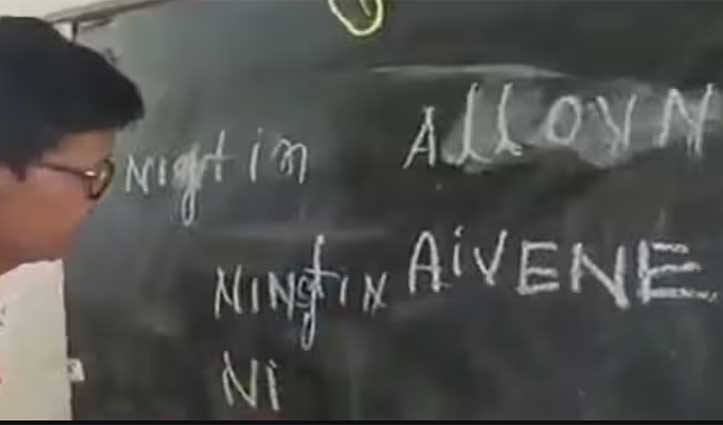 Nigtin AlloyN
NiNgtiN AiVENE
Ni